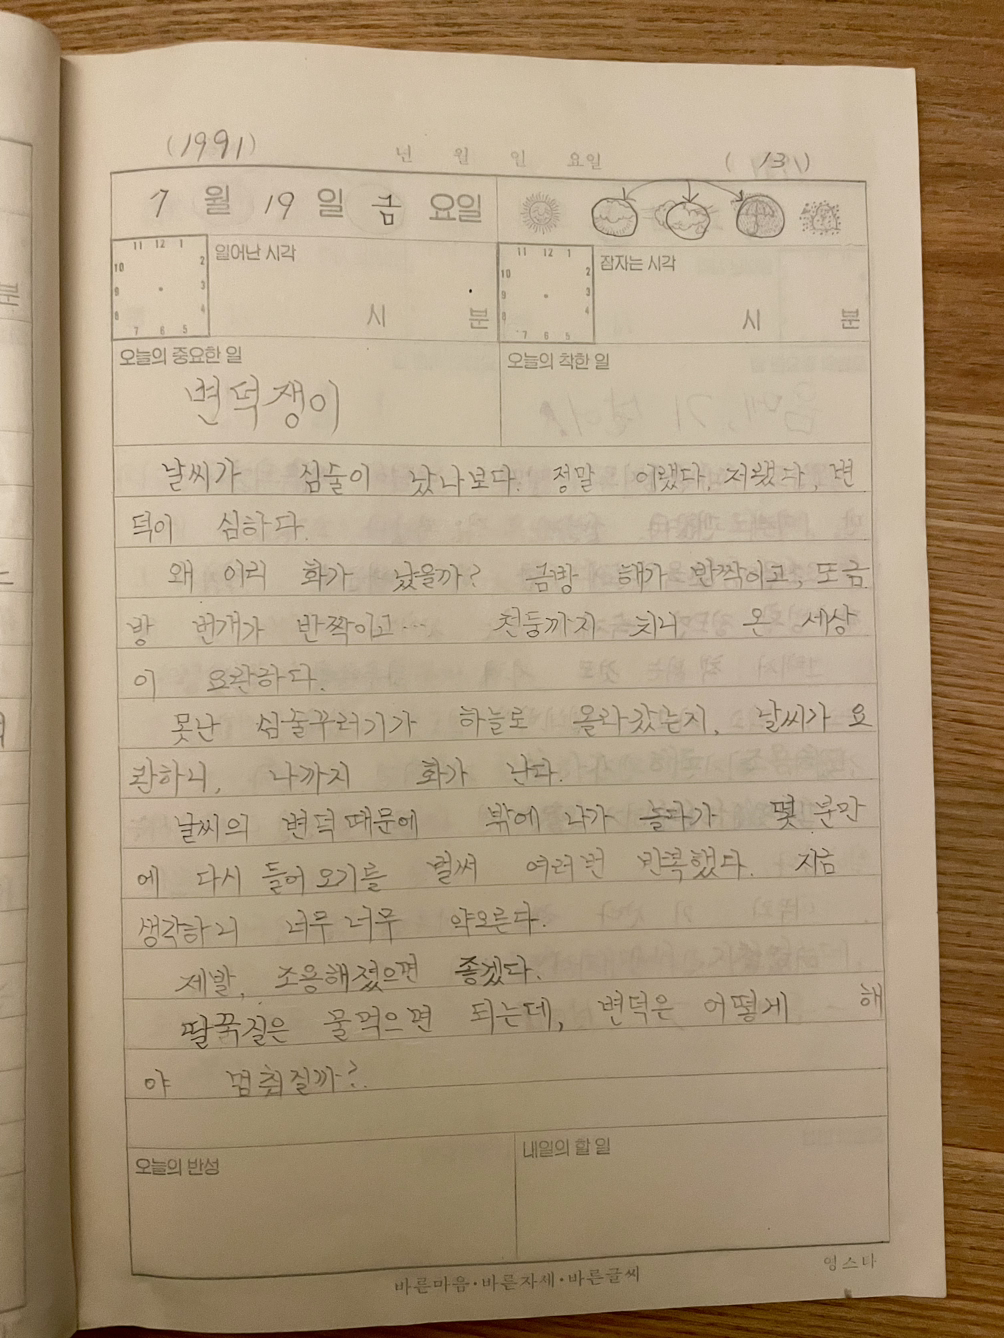 (1991)
년 월 일 요일
( 13 )
7 월 19 일 금 요일
11 12 1
10 2
9 3
8 4
7 6 5
일어난 시각
시 분
11 12 1
10 2
9 3
8 4
7 6 5
잠자는 시각
시 분
오늘의 중요한 일
변덕쟁이
오늘의 착한 일
날씨가 심술이 났나보다. 정말 이랬다, 저랬다, 변
덕이 심하다.
왜 이리 화가 났을까? 금방 해가 반짝이고, 또 금
방 번개가 반짝이고··· 천둥까지 치니 온 세상
이 요란하다.
못난 심술꾸러기가 하늘로 올라갔는지, 날씨가 요
란하니, 나까지 화가 난다.
날씨의 변덕 때문에 밖에 나가 놀다가 몇 분만
에 다시 들어 오기를 벌써 여러번 반복했다. 지금
생각하니 너무 너무 약오른다.
제발, 조용해졌으면 좋겠다.
딸꾹질은 물먹으면 되는데, 변덕은 어떻게 해
야 멈춰질까?
오늘의 반성
내일의 할 일
바른마음·바른자세·바른글씨
영스타